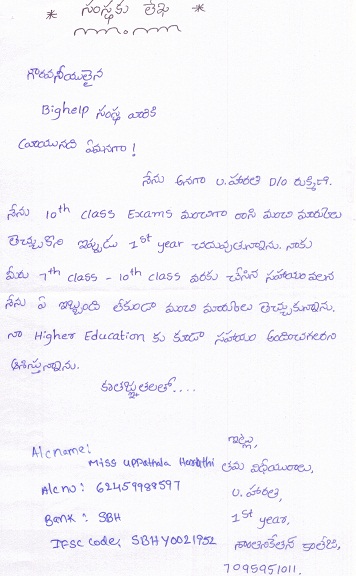 * సంస్థకు లేఖ *
గౌరవనీయులైన
Bighelp సంస్థ వారికి
వ్రాయునది ఏమనగా!
నేను అనగా ఉ.హారతి D/o రుక్మిణి.
నేను 10th class Exams మంచిగా రాసి మంచి మార్కులు
తెచ్చుకొని ఇప్పుడు 1st year చదువుతున్నాను. నాకు
మీరు 7th class - 10th class వరకు చేసిన సహాయం వలన
నేను ఏ ఇబ్బంది లేకుండా మంచి మార్కులు తెచ్చుకున్నాను.
నా Higher Education కు కూడా సహాయం అందించగలరని
ఆశిస్తున్నాను.
కృతజ్ఞతలతో....
ఇట్లు,
A/c name: Miss Uppathala Harathi తమ విధేయురాలు,
A/c no: 62459989597 ఉ. హారతి,
Bank: SBH 1st year,
IFSC Code: SBHY0021952 శాంతినికేతన్ కాలేజి,
7095951011.